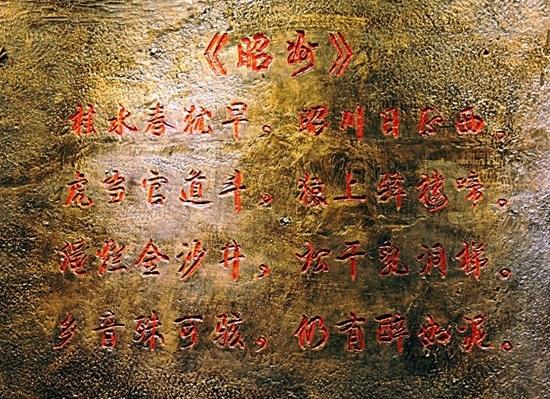 《昭州》
桂水春犹早。昭川日正西。
虎当官道斗。猿上驿楼啼。
绳烂金沙井,松干乳洞梯。
乡音殊可骇,仍有醉如泥。